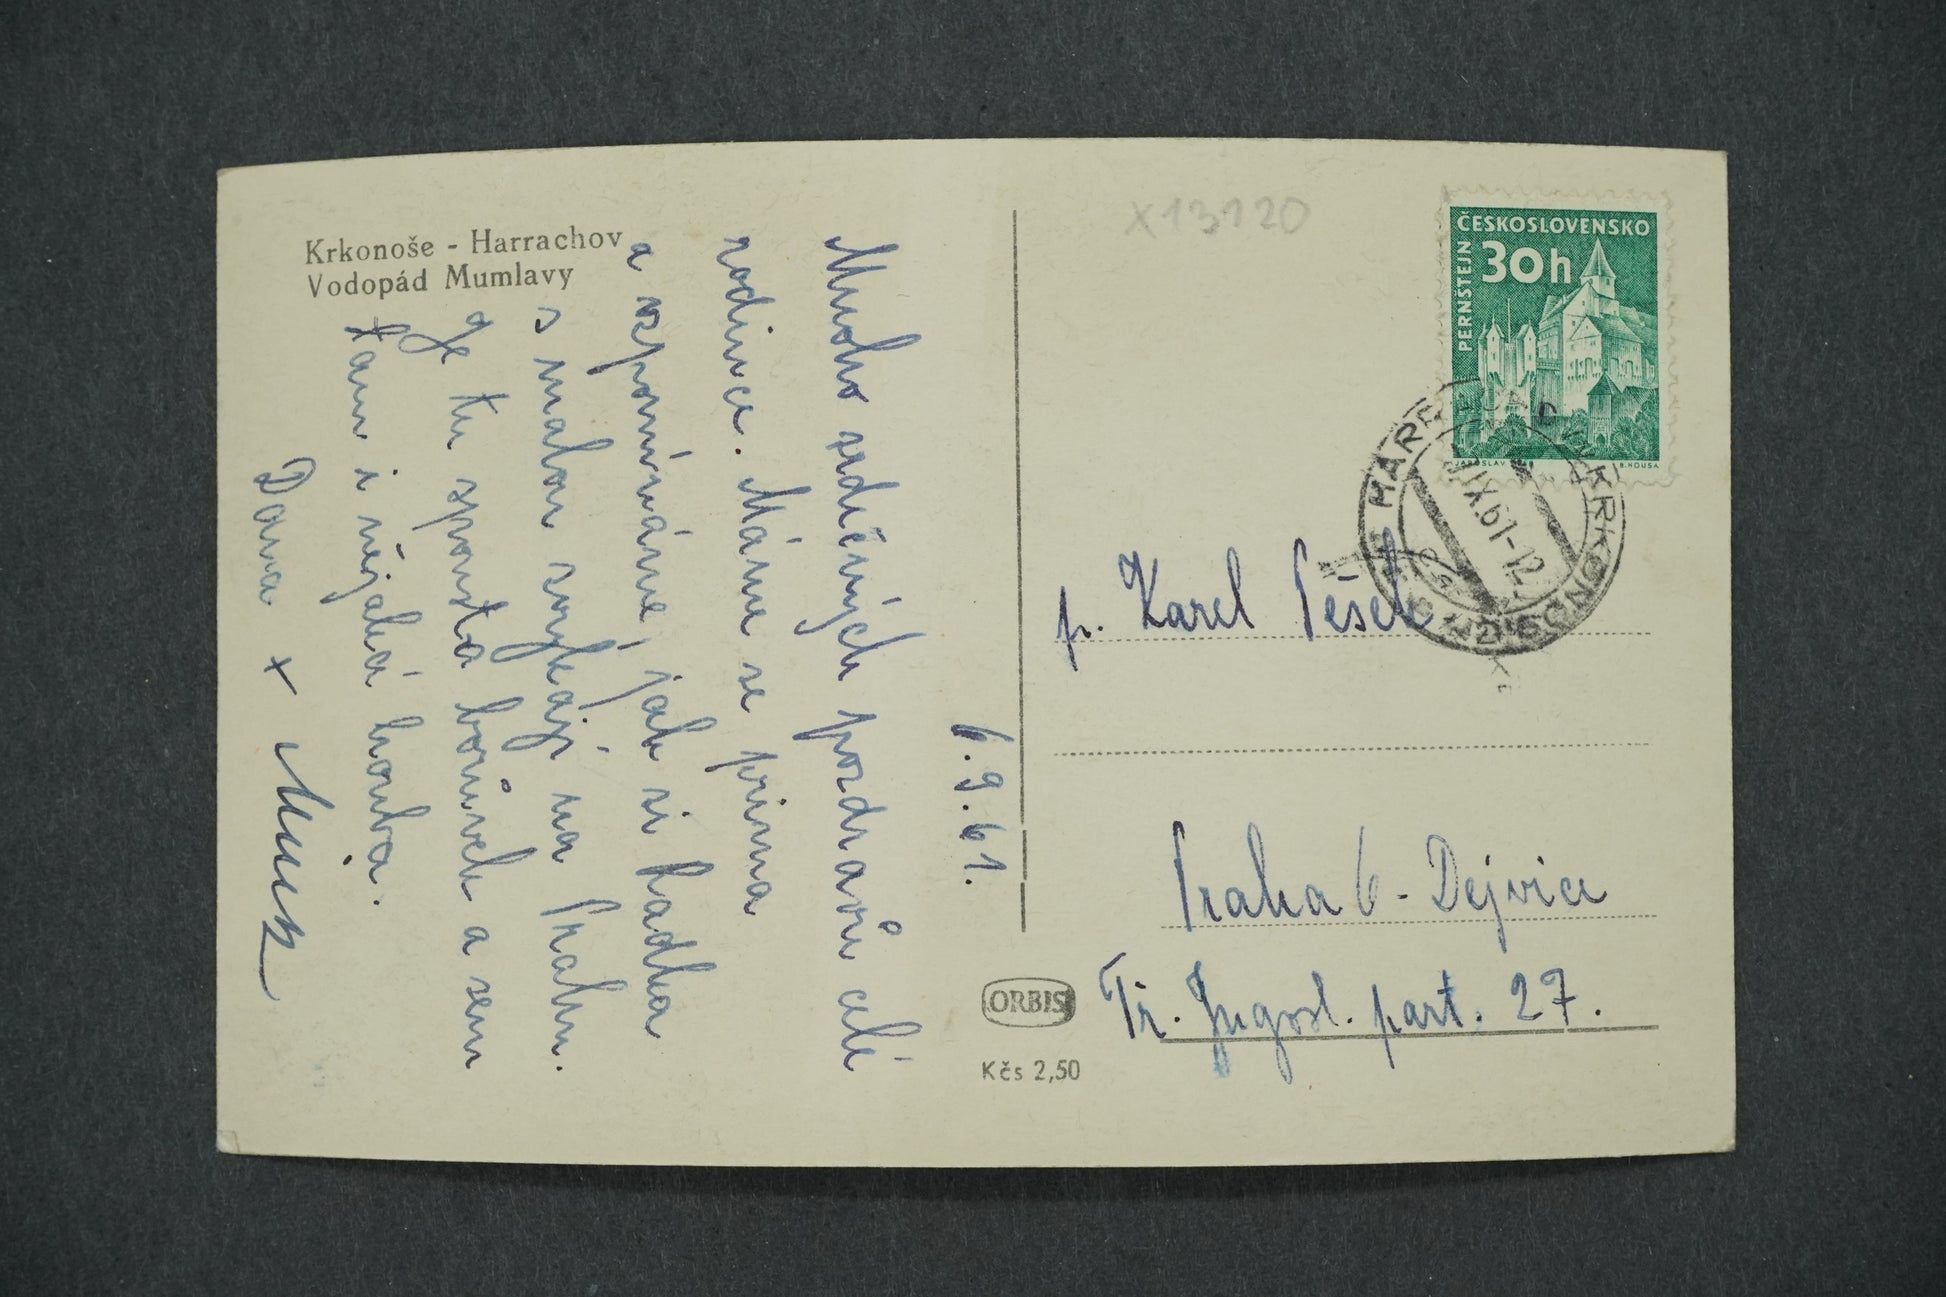 Krkonoše - Harrachov
Vodopád Mumlavy
6.9.61.
Mnoho srdečných pozdravů celé
rodince. Máme se prima
a vzpomínáme, jak si Radka
s malou zvykají na Prahu.
Je tu spousta borůvek a sem
tam i nějaká houba.
Dana + Mirek
X13120
ČESKOSLOVENSKO
30h
PERNŠTEJN
JAROSLAV
B. HOUSA
HARRACHOV V KRKONOŠÍCH
IX.61-12
p. Karel Pešek
Praha 6 - Dejvice
Tř. Jugosl. part. 27.
ORBIS
Kčs 2,50